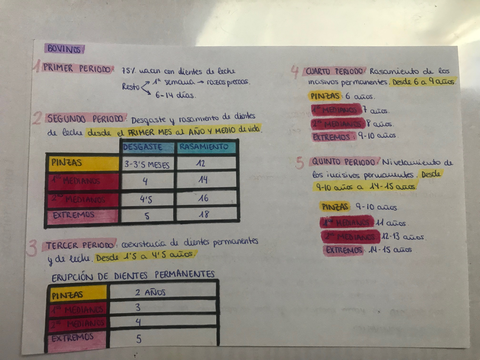 BOVINOS
1 PRIMER PERIODO: 75% nacen con dientes de leche
Resto 1ª semana → razas precoces
6-14 días.
2 SEGUNDO PERIODO: Desgaste y rasamiento de dientes
de leche desde el PRIMER MES al AÑO Y MEDIO de vida
DESGASTE RASAMIENTO
PINZAS 3-3'5 MESES 12
1os MEDIANOS 4 14
2os MEDIANOS 4'5 16
EXTREMOS 5 18
3 TERCER PERIODO: coexistencia de dientes permanentes
y de leche. Desde 1'5 a 4'5 años.
ERUPCIÓN DE DIENTES PERMANENTES
PINZAS 2 AÑOS
1os MEDIANOS 3
2os MEDIANOS 4
EXTREMOS 5
4 CUARTO PERIODO: Rasamiento de los
incisivos permanentes. Desde 6 a 9 años
PINZAS: 6 años.
1os MEDIANOS 7 años.
2os MEDIANOS 8 años
EXTREMOS 9-10 años
5 QUINTO PERIODO: Nivelamiento de
los incisivos permanentes. Desde
9-10 años a 14-15 años.
PINZAS: 9-10 años.
1os MEDIANOS 11 años
2os MEDIANOS 12-13 años
EXTREMOS 14-15 años